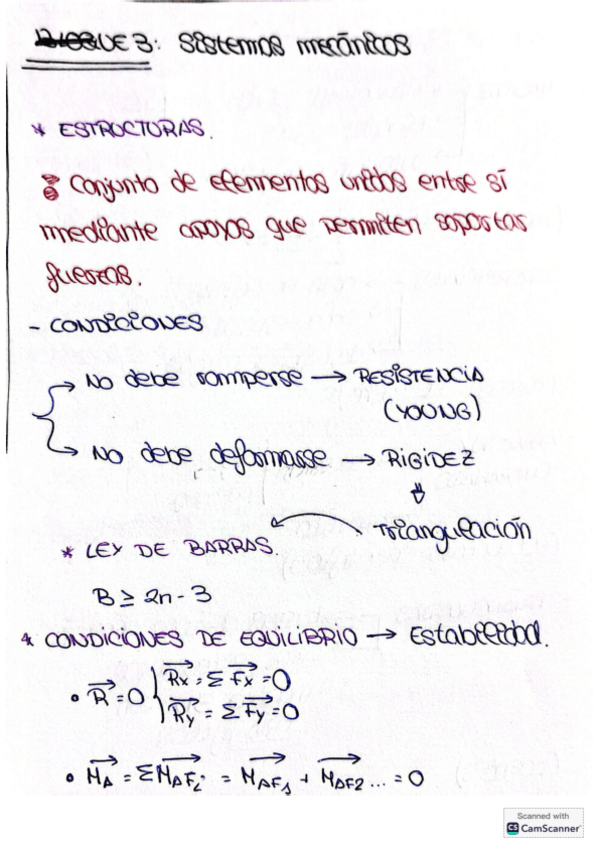 BLOQUE 3: Sistemas mecánicos
* ESTRUCTURAS.
Conjunto de elementos unidos entre sí
mediante apoyos que permiten soportar
fuerzas.
- CONDICIONES
→ No debe romperse → RESISTENCIA
(YOUNG)
→ No debe deformarse → RIGIDEZ
⇓
Triangulación
* LEY DE BARRAS.
B ≥ 2n - 3
* CONDICIONES DE EQUILIBRIO → Estabilidad.
• R⃗ = 0 { R⃗x = Σ F⃗x = 0
R⃗y = Σ F⃗y = 0
• M⃗A = Σ M⃗AFi = M⃗AF1 + M⃗AF2 ... = 0
Scanned with
CS CamScanner